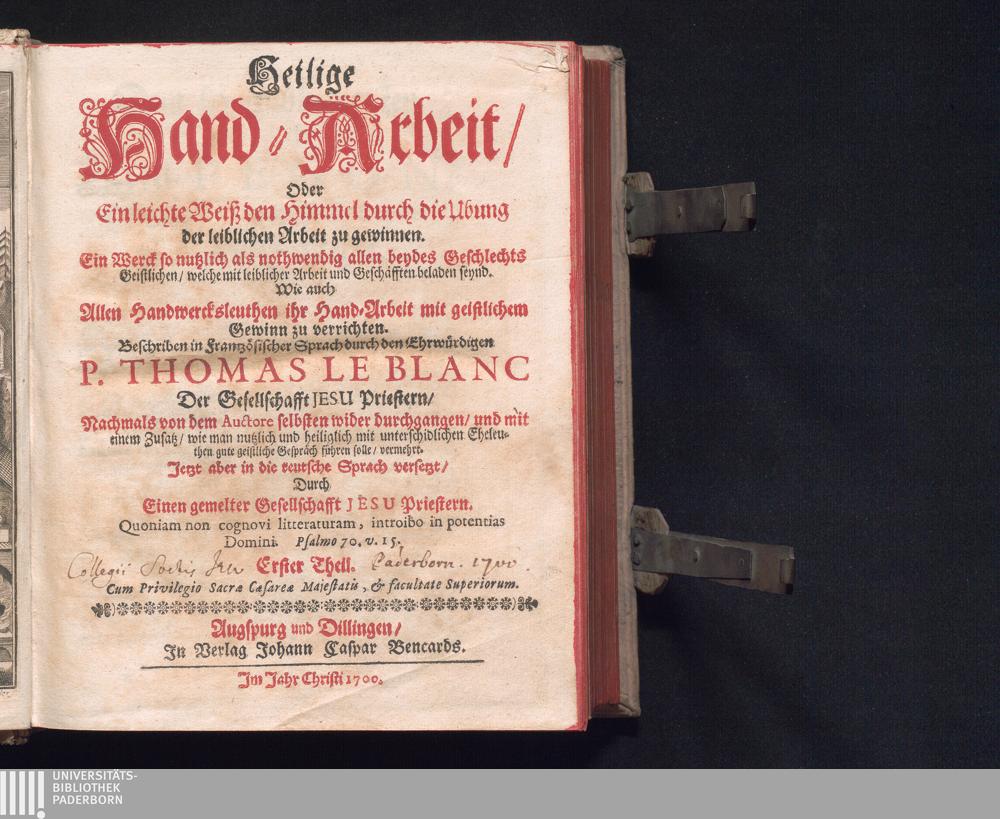 Heilige
Hand-Arbeit/
Oder
Ein leichte Weiß den Himmel durch die Ubung
der leiblichen Arbeit zu gewinnen.
Ein Werck so nutzlich als nothwendig allen beydes Geschlechts
Geistlichen/ welche mit leiblicher Arbeit und Geschäfften beladen seynd.
Wie auch
Allen Handwercksleuthen ihr Hand-Arbeit mit geistlichem
Gewinn zu verrichten.
Beschriben in Frantzösischer Sprach durch den Ehrwürdigen
P. THOMAS LE BLANC
Der Gesellschafft JESU Priestern/
Nachmals von dem Auctore selbsten wider durchgangen/ und mit
einem Zusatz/ wie man nutzlich und heiliglich mit unterschidlichen Eheleu-
then gute geistliche Gespräch führen solle/ vermehrt.
Jetzt aber in die teutsche Sprach versetzt/
Durch
Einen gemelter Gesellschafft JESU Priestern.
Quoniam non cognovi litteraturam, introibo in potentias
Domini. Psalmo 70. v. 15.
Collegii Soctis Jesu Erster Theil. Paderborn. 1700.
Cum Privilegio Sacræ Cæsareæ Majestatis, & facultate Superiorum.
Augspurg und Dillingen/
In Verlag Johann Caspar Bencards.
Im Jahr Christi 1700.
UNIVERSITÄTS-
BIBLIOTHEK
PADERBORN